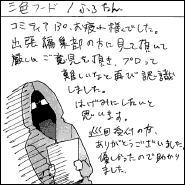 三色フード / ふるたん
コミティア130、お疲れ様でした。
出張編集部の方に見て頂いて
厳しいご意見を頂き、プロって
難しいなと再び認識
しました。
はげみにしたいと
思います。
巡回受付の方、
ありがとうございました。
優しかったので助かり
ました。